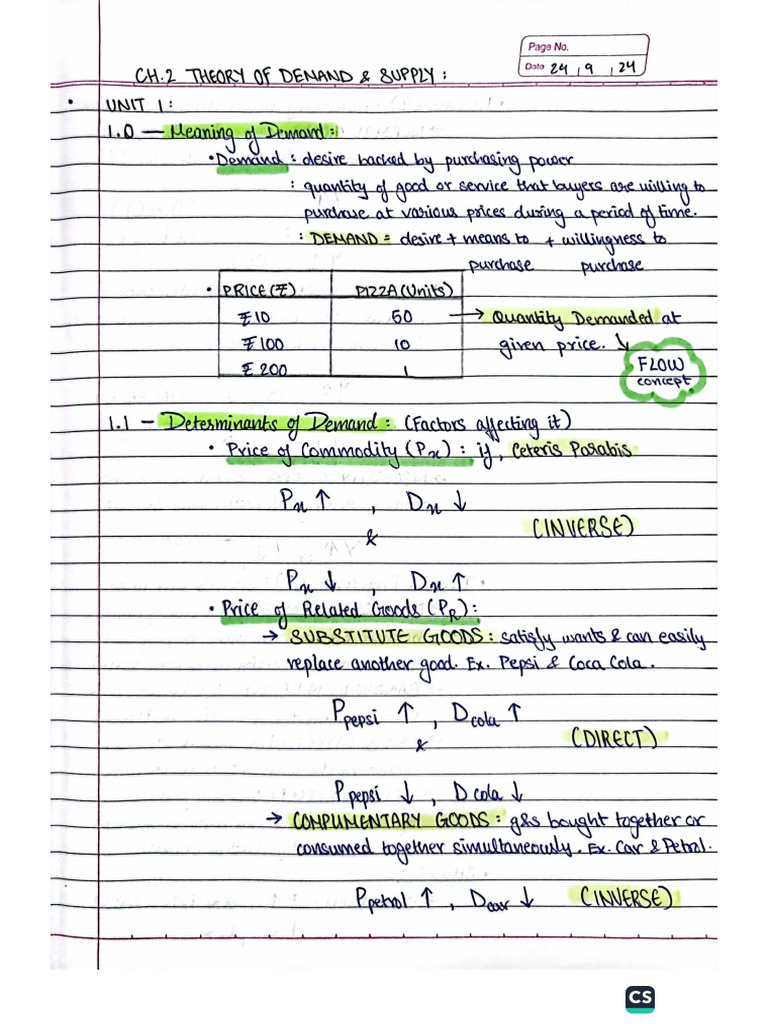 Page No.
Date 24 9 24
CH.2 THEORY OF DEMAND & SUPPLY:
• UNIT 1:
1.0 — Meaning of Demand:
• Demand: desire backed by purchasing power
: quantity of good or service that buyers are willing to
purchase at various prices during a period of time.
: DEMAND = desire + means to + willingness to
purchase purchase
• PRICE(₹) PIZZA(Units)
₹10 50 → Quantity Demanded at
₹100 10 given price. ↘ FLOW
₹200 1 concept
1.1 — Determinants of Demand: (Factors affecting it)
• Price of Commodity (Px): if, Ceteris Parabis
Px ↑ , Dx ↓
& (INVERSE)
Px ↓ , Dx ↑
• Price of Related Goods (PR):
→ SUBSTITUTE GOODS: satisfy wants & can easily
replace another good. Ex. Pepsi & Coca Cola.
Ppepsi ↑ , Dcola ↑
& (DIRECT)
Ppepsi ↓ , Dcola ↓
→ COMPLIMENTARY GOODS: g&s bought together or
consumed together simultaneously. Ex. Car & Petrol.
Ppetrol ↑ , Dcar ↓ (INVERSE)
CS